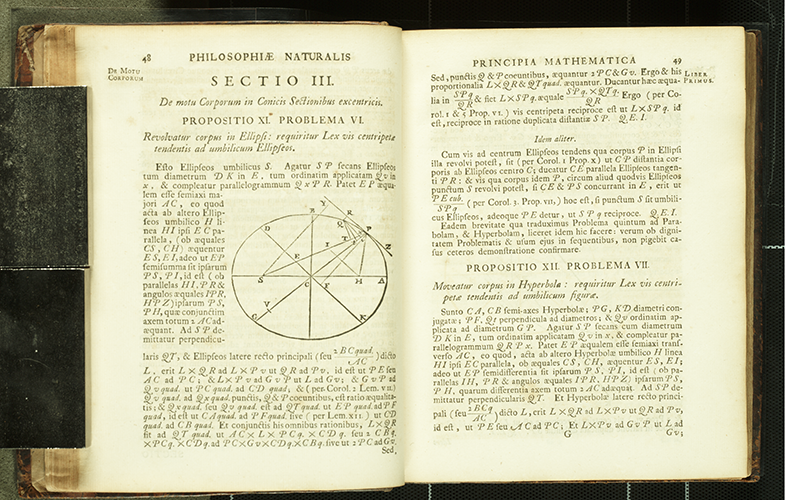 48
PHILOSOPHIÆ NATURALIS
De Motu
Corporum
SECTIO III.
De motu Corporum in Conicis Sectionibus excentricis.
PROPOSITIO XI. PROBLEMA VI.
Revolvatur corpus in Ellipsi: requiritur Lex vis centripetæ
tendentis ad umbilicum Ellipseos.
Esto Ellipseos umbilicus S. Agatur SP secans Ellipseos
tum diametrum DK in E, tum ordinatim applicatam Qv in
x, & compleatur parallelogrammum QxPR. Patet EP æqua-
lem esse semiaxi ma-
jori AC, eo quod
acta ab altero Ellip-
seos umbilico H li-
nea HI ipsi EC pa-
rallela, (ob æquales
CS, CH) æquentur
ES, EI, adeo ut EP
semisumma sit ipsarum
PS, PI, id est (ob
parallelas HI, PR &
angulos æquales IPR,
HPZ) ipsarum PS,
PH, quæ conjunctim
axem totum 2AC ad-
æquant. Ad SP de-
mittatur perpendicu-
laris QT, & Ellipseos latere recto principali (seu 2BC quad./AC) dicto
L, erit L×QR ad L×Pv ut QR ad Pv, id est ut PE seu
AC ad PC; & L×Pv ad GvP ut L ad Gv; & GvP ad
Qv quad. ut PC quad. ad CD quad. & (per Corol. 2 Lem. VII.)
Qv quad. ad Qx quad. punctis, Q & P coeuntibus, est ratio æqualita-
tis; & Qx quad. seu Qv quad. est ad QT quad. ut EP quad. ad PF
quad, id est ut CA quad. ad PF quad. sive (per Lem. XII.) ut CD
quad. ad CB quad. Et conjunctis his omnibus rationibus, L×QR
fit ad QT quad. ut AC×L×PCq.×CDq. seu 2CBq.
×PCq.×CDq. ad PC×Gv×CDq.×CBq. sive ut 2PC ad Gv.
Sed,
PRINCIPIA MATHEMATICA
49
Sed, punctis Q & P coeuntibus, æquantur 2PC & Gv. Ergo & his
Liber
Primus.
proportionalia L×QR & QT quad. æquantur. Ducantur hæc æqua-
lia in SPq/QR & fiet L×SPq. æquale SPq.×QTq./QR Ergo (per Co-
rol. 1 & 5 Prop. VI.) vis centripeta reciproce est ut L×SPq. id
est, reciproce in ratione duplicata distantiæ SP. Q.E.I.
Idem aliter.
Cum vis ad centrum Ellipseos tendens qua corpus P in Ellipsi
illa revolvi potest, sit (per Corol. 1 Prop. X) ut CP distantia cor-
poris ab Ellipseos centro C; ducatur CE parallela Ellipseos tangen-
ti PR: & vis qua corpus idem P, circum aliud quodvis Ellipseos
punctum S revolvi potest, si CE & PS concurrant in E, erit ut
PE cub./SPq (per Corol. 3. Prop. VII.) hoc est, si punctum S sit umbili-
cus Ellipseos, adeoque PE detur, ut SPq reciproce. Q.E.I.
Eadem brevitate qua traduximus Problema quintum ad Para-
bolam, & Hyperbolam, liceret idem hic facere: verum ob digni-
tatem Problematis & usum ejus in sequentibus, non pigebit ca-
sus ceteros demonstratione confirmare.
PROPOSITIO XII. PROBLEMA VII.
Moveatur corpus in Hyperbola: requiritur Lex vis centri-
petæ tendentis ad umbilicum figuræ.
Sunto CA, CB semi-axes Hyperbolæ; PG, KD diametri con-
jugatæ; PF, Qt perpendicula ad diametros; & Qv ordinatim ap-
plicata ad diametrum GP. Agatur SP secans cum diametrum
DK in E, tum ordinatim applicatam Qv in x, & compleatur pa-
rallelogrammum QRPx. Patet EP æqualem esse semiaxi trans-
verso AC, eo quod, acta ab altero Hyperbolæ umbilico H linea
HI ipsi EC parallela, ob æquales CS, CH, æquentur ES, EI;
adeo ut EP semidifferentia sit ipsarum PS, PI, id est (ob pa-
rallelas IH, PR & angulos æquales IPR, HPZ) ipsarum PS,
PH, quarum differentia axem totum 2AC adæquat. Ad SP de-
mittatur perpendicularis QT. Et Hyperbolæ latere recto princi-
pali (seu 2BCq/AC) dicto L, erit L×QR ad L×Pv ut QR ad Pv,
id est, ut PE seu AC ad PC; Et L×Pv ad GvP ut L ad
G
Gv;